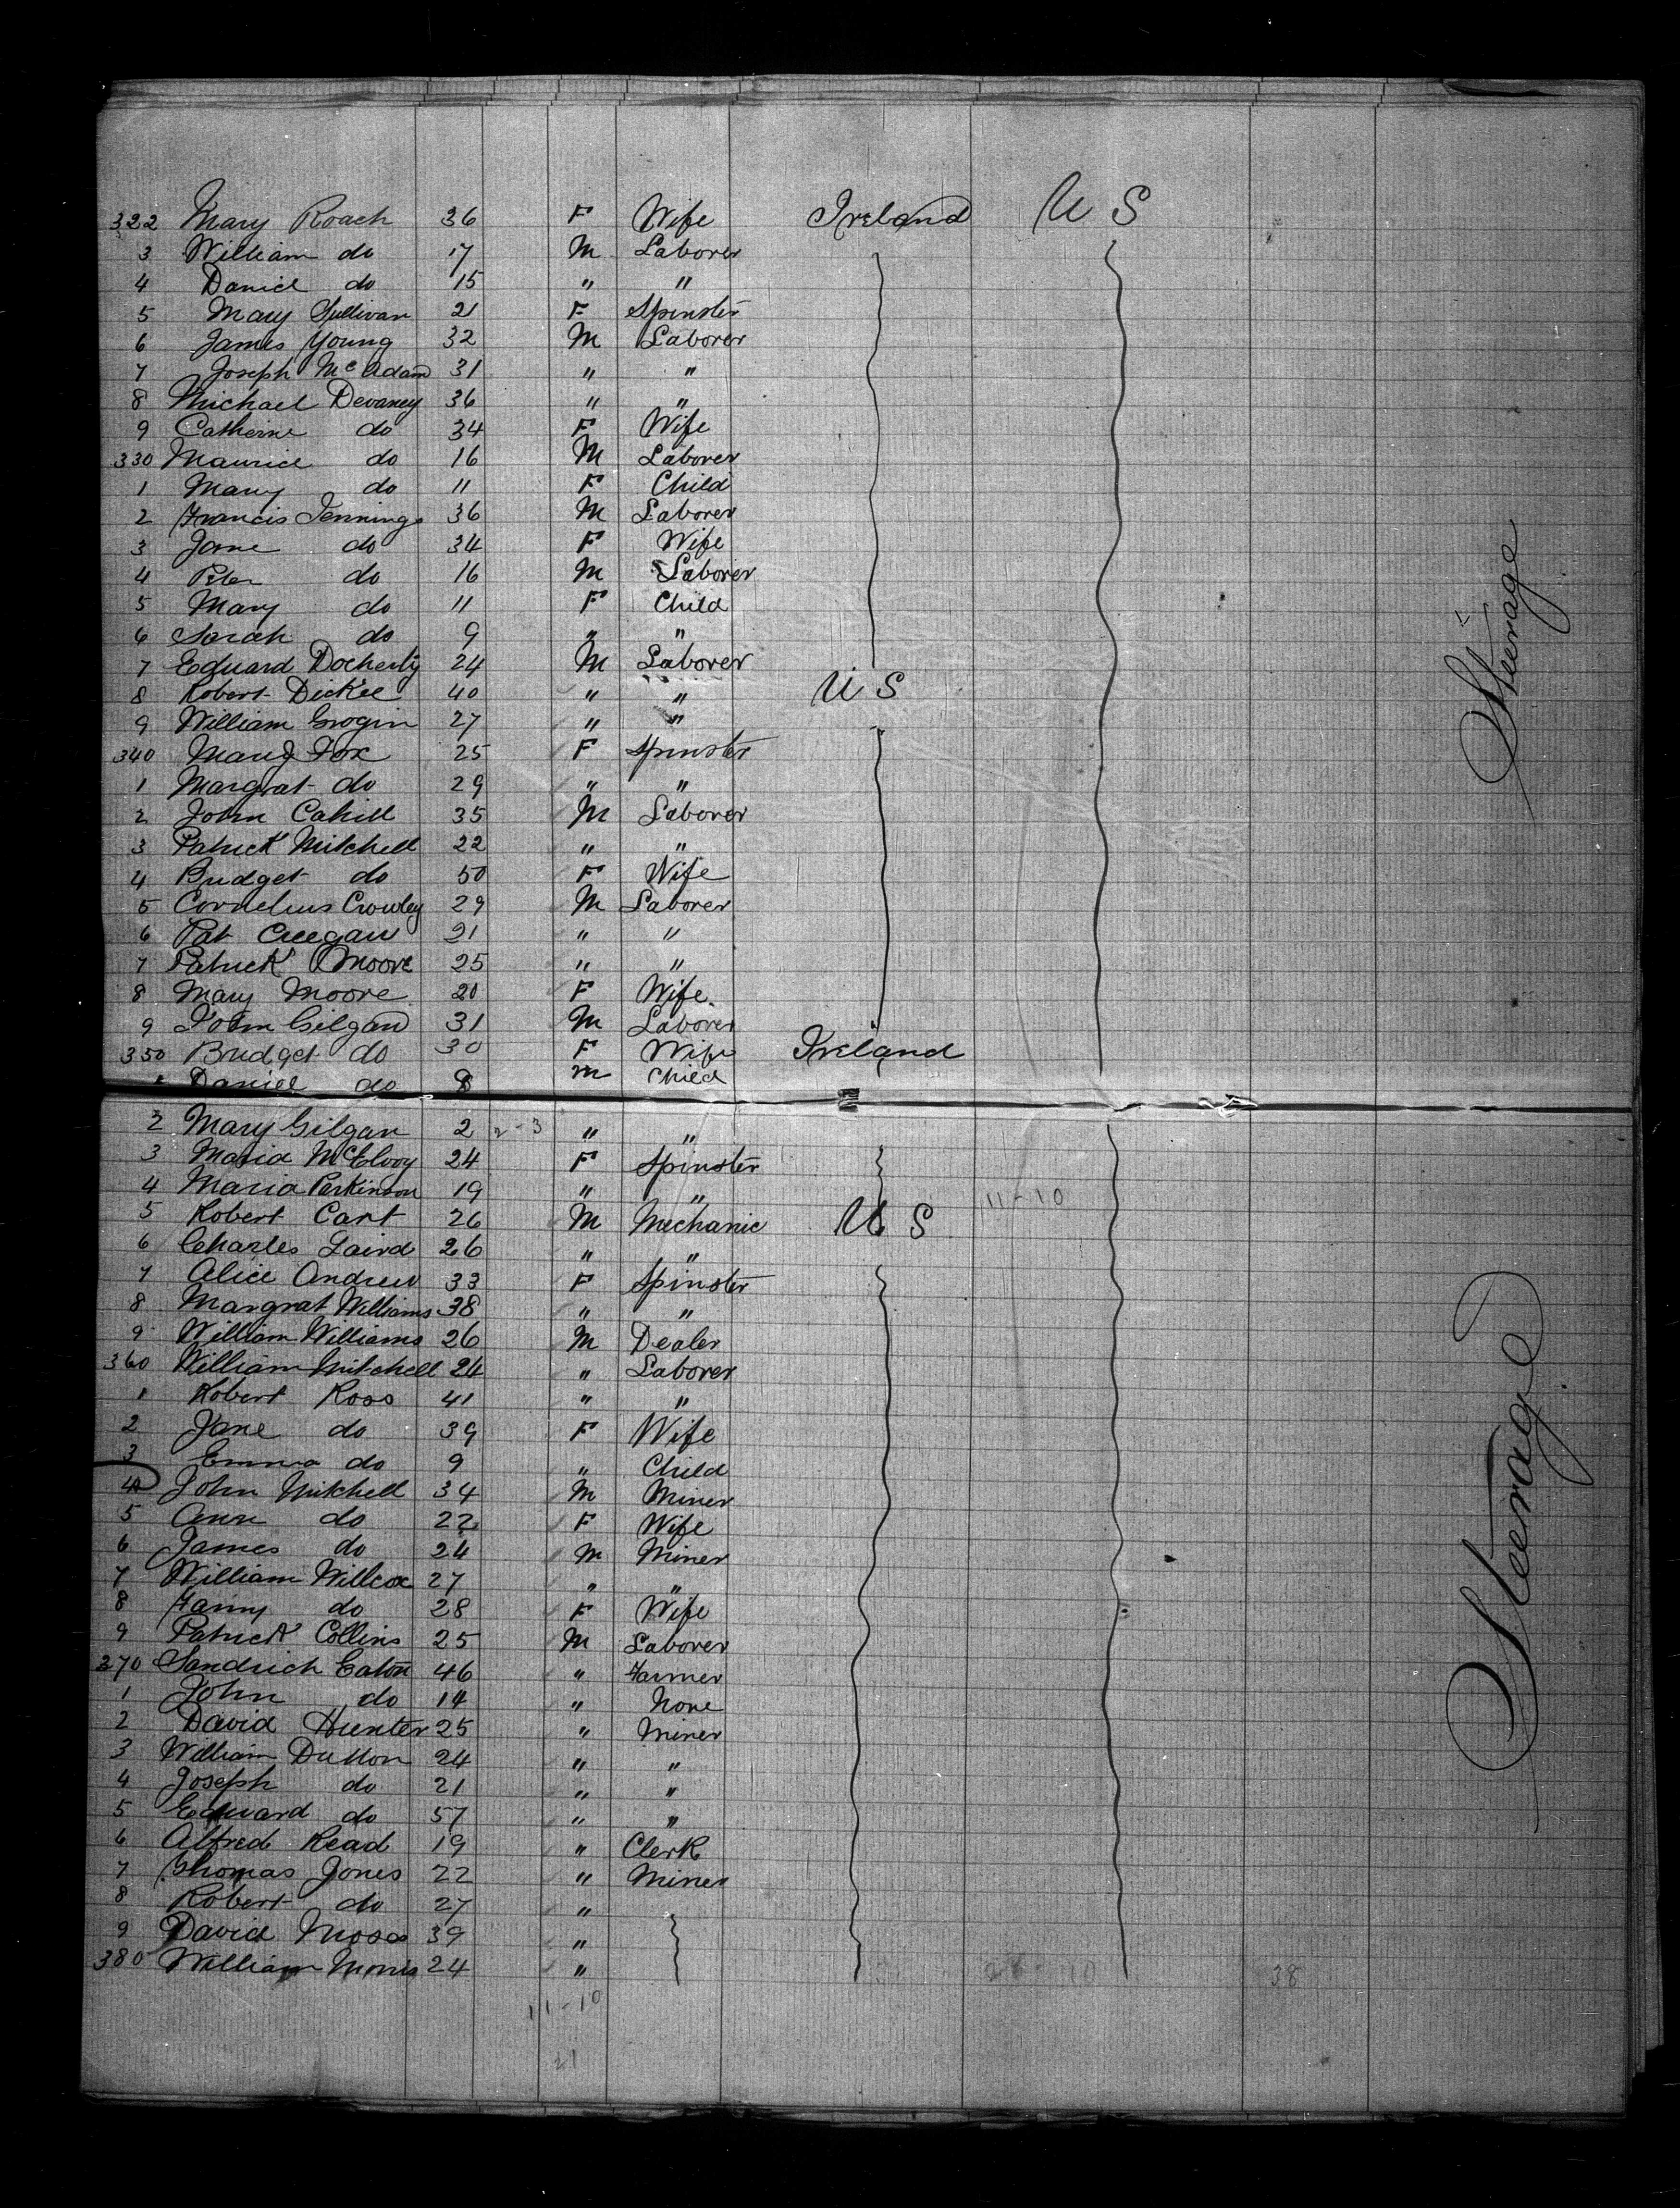 322 Mary Roach 36 F Wife Ireland U S
3 William do 17 M Laborer
4 Daniel do 15 " "
5 Mary Sullivan 21 F Spinster
6 James Young 32 M Laborer
7 Joseph McAdam 31 " "
8 Michael Devaney 36 " "
9 Catherine do 34 F Wife
330 Maurice do 16 M Laborer
1 Mary do 11 F Child
2 Francis Jennings 36 M Laborer
3 Jane do 34 F Wife
4 Peter do 16 M Laborer
5 Mary do 11 F Child
6 Sarah do 9 " "
7 Edward Docherty 24 M Laborer
8 Robert Dickee 40 " " U S
9 William Grogin 27 " "
340 Mary Fox 25 F Spinster
1 Margrat do 29 " "
2 John Cahill 35 M Laborer
3 Patrick Mitchell 22 " "
4 Bridget do 50 F Wife
5 Cornelius Crowley 29 M Laborer
6 Pat Creegan 21 " "
7 Patrick Moore 25 " "
8 Mary Moore 20 F Wife
9 John Gilgan 31 M Laborer
350 Bridget do 30 F Wife Ireland
1 Daniel do 8 M Child
2 Mary Gilgan 2 2-3 " "
3 Maria McElvoy 24 F Spinster
4 Maria Parkinson 19 " " 11-10
5 Robert Cart 26 M Mechanic U S
6 Charles Laird 26 " "
7 Alice Andrew 33 F Spinster
8 Margrat Williams 38 " "
9 William Williams 26 M Dealer
360 William Mitchell 24 " Laborer
1 Robert Ross 41 " "
2 Jane do 39 F Wife
3 Emma do 9 " Child
4 John Mitchell 34 M Miner
5 Ann do 22 F Wife
6 James do 24 M Miner
7 William Willcox 27 " "
8 Fanny do 28 F Wife
9 Patrick Collins 25 M Laborer
270 Sandrich Eaton 46 " Farmer
1 John do 14 " None
2 David Hunter 25 " Miner
3 William Dutton 24 " "
4 Joseph do 21 " "
5 Edward do 57 " "
6 Alfred Read 19 " Clerk
7 Thomas Jones 22 " Miner
8 Robert do 27 "
9 David Moss 39 "
380 William Morris 24 " 38
11-10
21
Steerage
Steerage